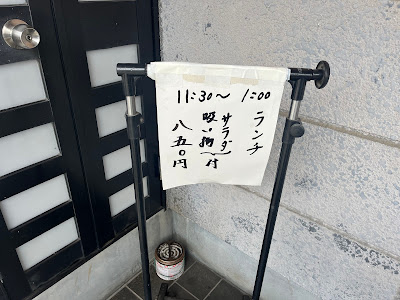 11:30〜 1:00
ランチ
サラダ
吸い物 付
八五〇円